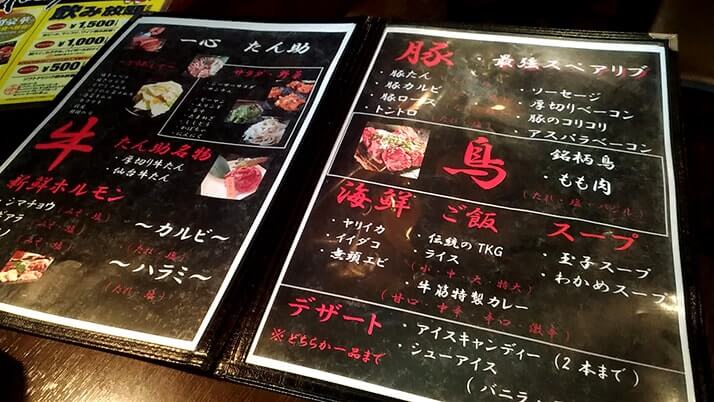 飲み放題
¥1,500
¥1,000
一心 たん助
サラダ・野菜
牛
たん助名物
・厚切り牛たん
仙台牛たん
新鮮ホルモン
・シマチョウ
(みそ・塩)
ギアラ
(みそ・塩)
(みそ・塩)
～カルビ～
(たれ・塩)
～ハラミ～
(たれ・塩)
豚
・最強スペアリブ
・豚たん
・豚カルビ
・豚ロース
・トントロ
・ソーセージ
・厚切りベーコン
・豚のコリコリ
・アスパラベーコン
鳥
銘柄鳥
・もも肉
(たれ・塩・バジル)
海鮮
・ヤリイカ
・イイダコ
・無頭エビ
ご飯
・伝統のTKG
・ライス
(小・中・大・特大)
・牛筋特製カレー
(甘口・中辛・辛口・激辛)
スープ
・玉子スープ
・わかめスープ
デザート
※どちらか一品まで
・アイスキャンディー(2本まで)
・シューアイス
(バニラ・